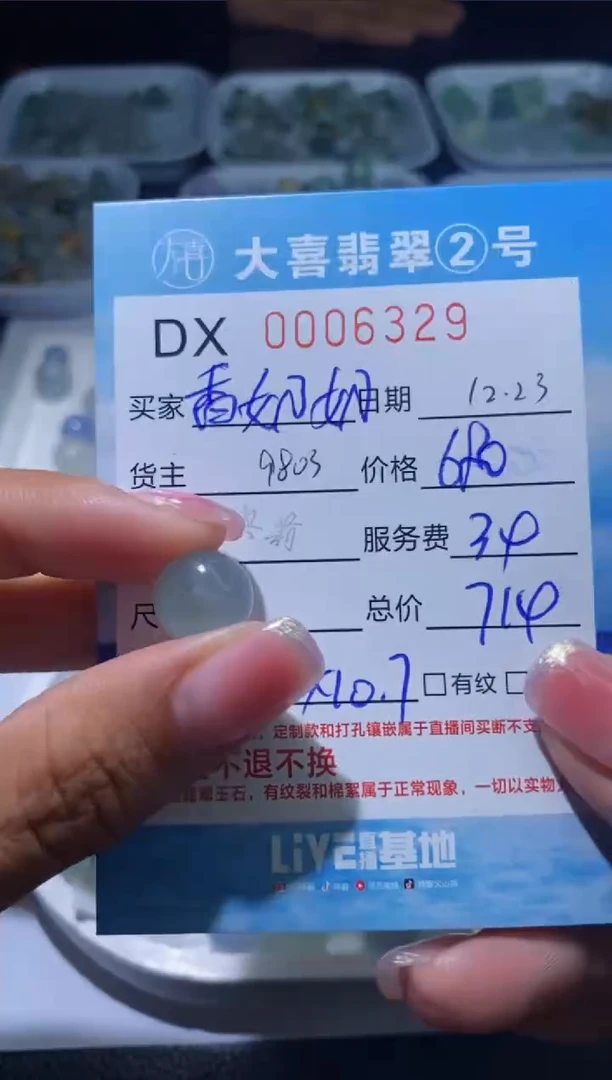 大喜翡翠②号
DX 0006329
买家 香奶奶 日期 12.23
货主 9803 价格 680
服务费 34
尺 总价 714
×10.7 □有纹 □
定制款和打孔镶嵌属于直播间买断不支
不退不换
玉石，有纹裂和棉絮属于正常现象，一切以实物
LiVE直播基地